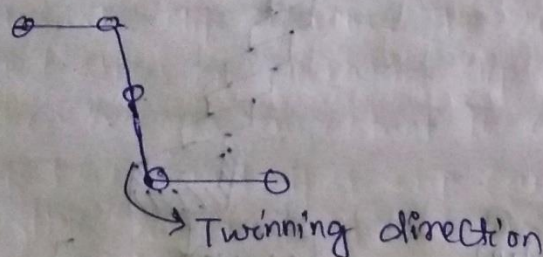 Twinning direction